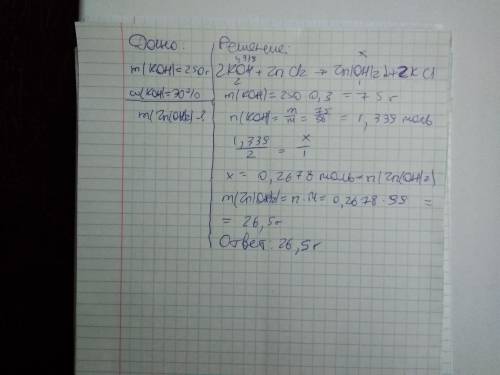 Дано:
m(KOH)=250г
ω(KOH)=30%
m(Zn(OH)2)-?
Решение:
1,339 x
2KOH+ZnCl2→Zn(OH)2↓+2KCl
2 1
m(KOH)=250·0,3=75г
n(KOH)=m/M=75/56=1,339 моль
1,339/2=x/1
x=0,2678 моль-n(Zn(OH)2)
m(Zn(OH)2)=n·M=0,2678·99=
=26,5г
Ответ: 26,5г